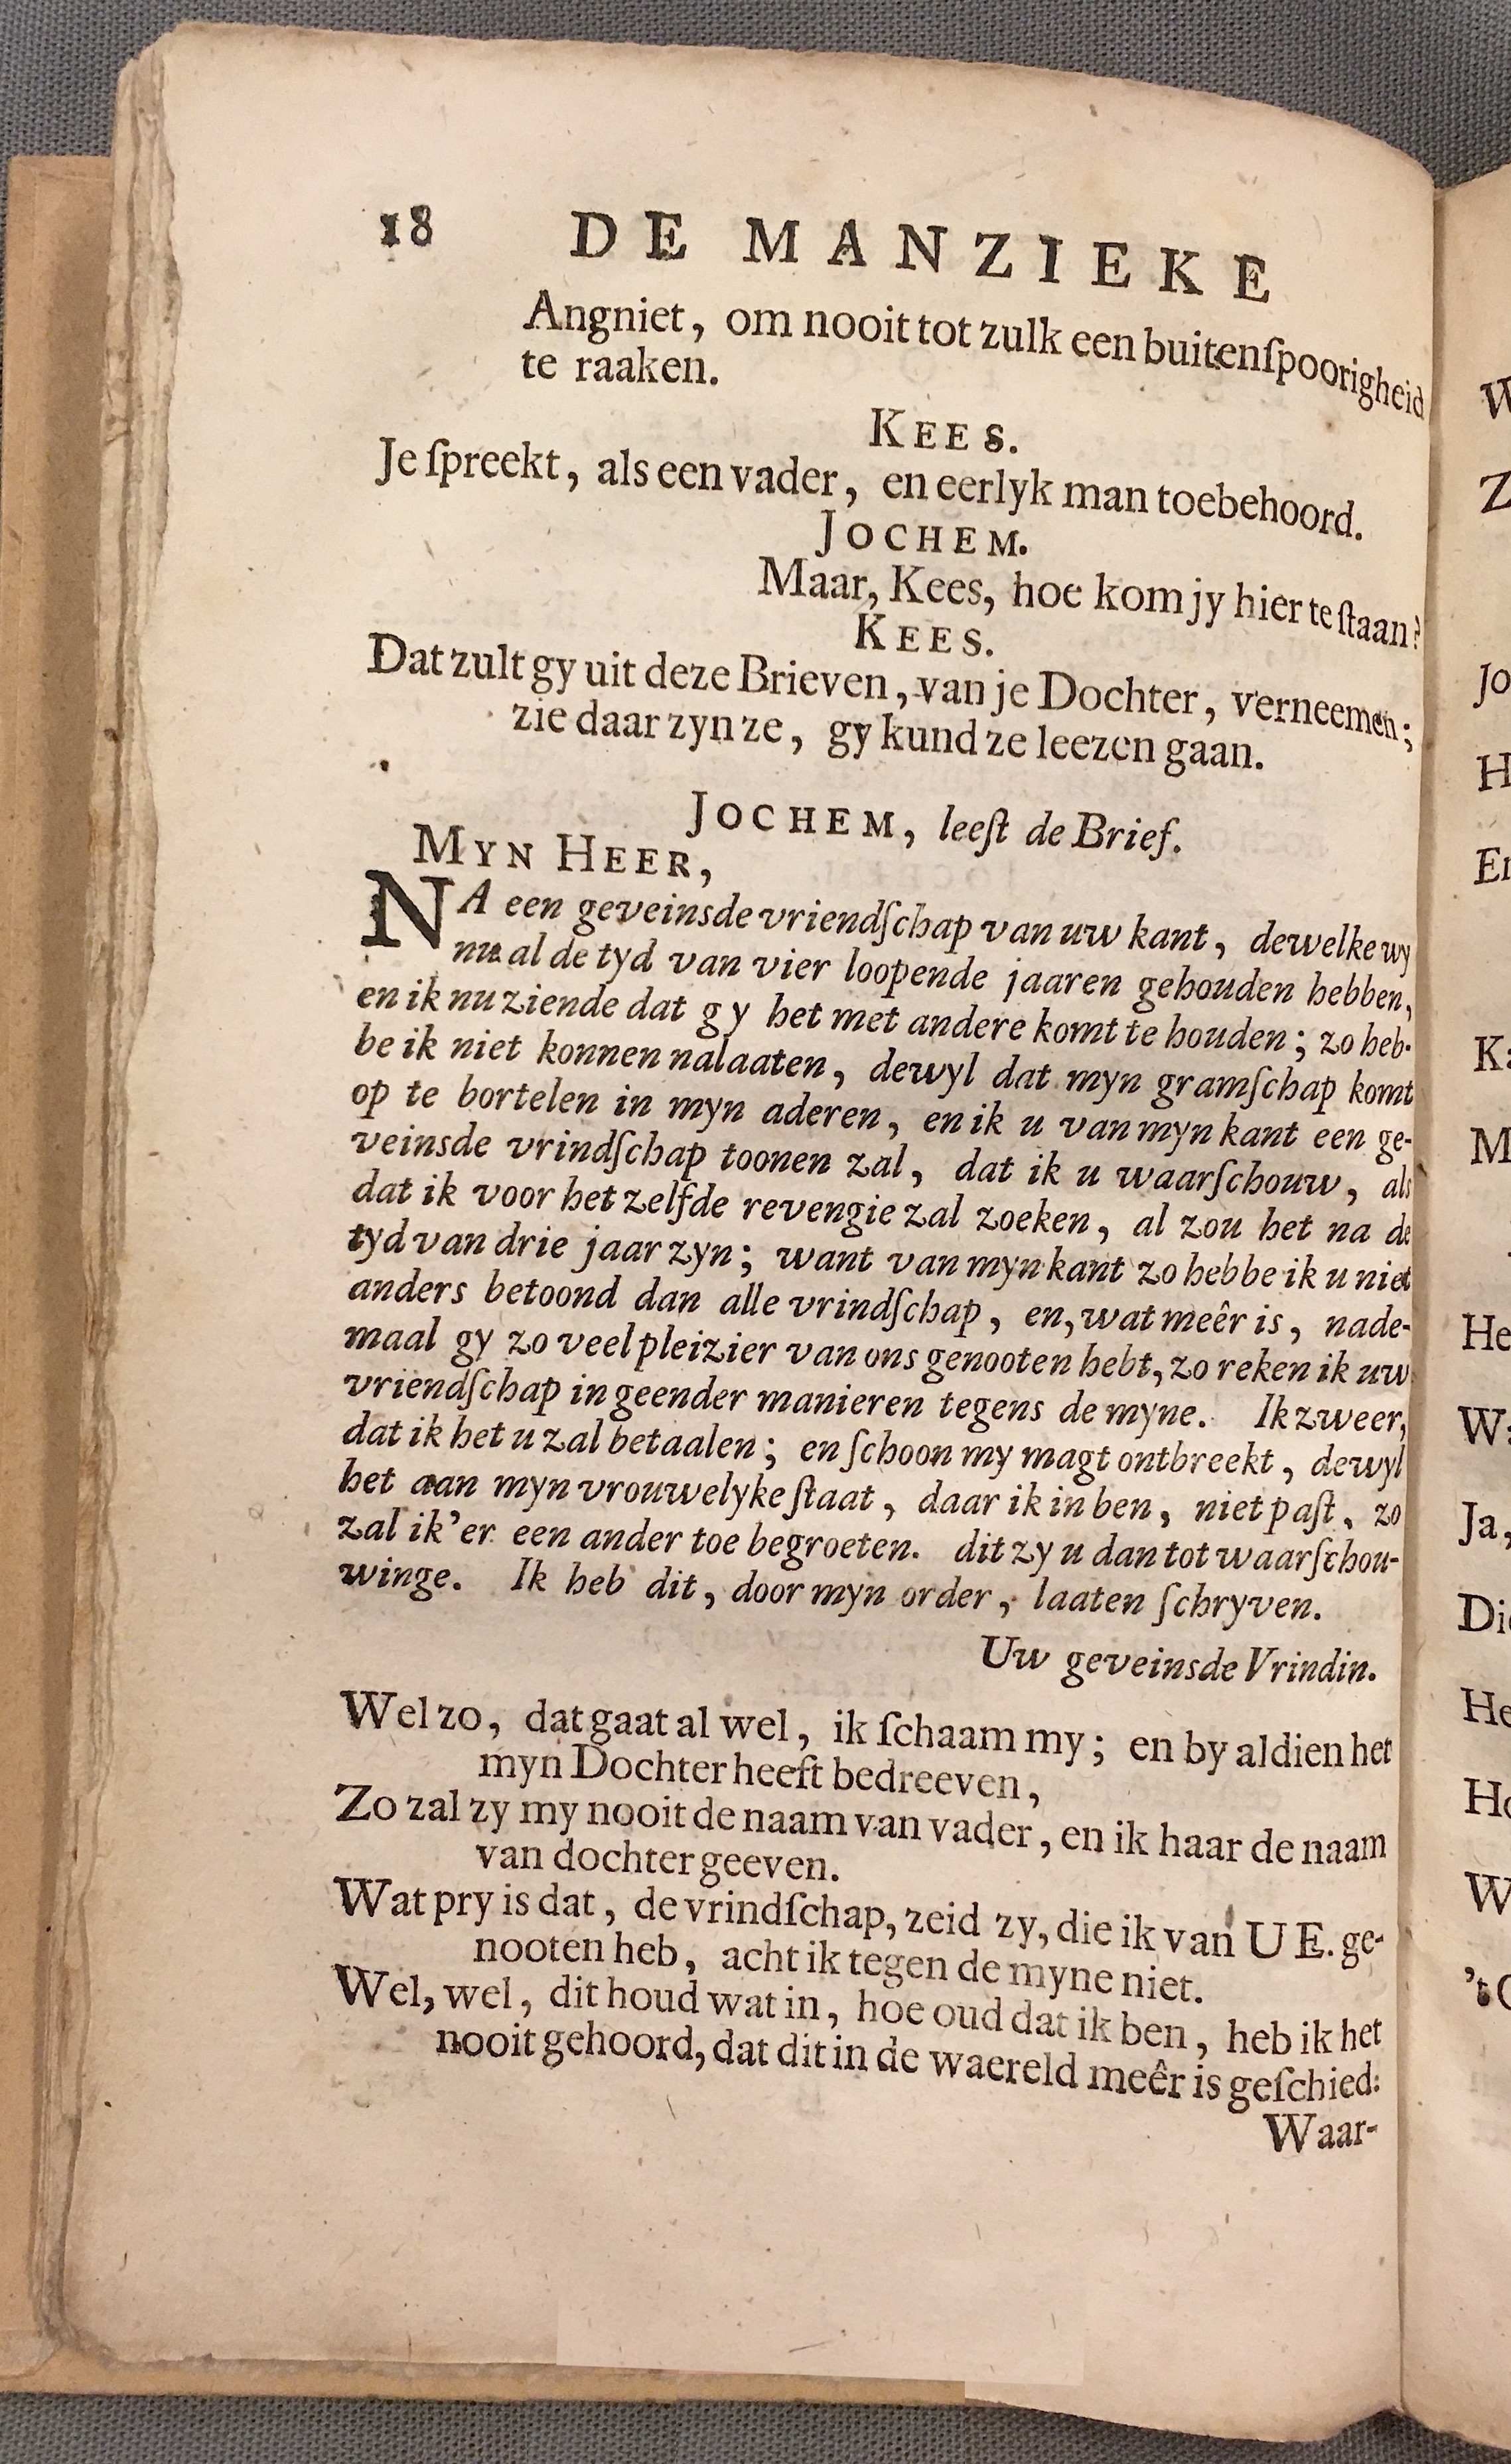 18 DE MANZIEKE
Angniet, om nooit tot zulk een buitenſpoorigheid
te raaken.
KEES.
Je ſpreekt, als een vader, en eerlyk man toebehoord.
JOCHEM.
Maar, Kees, hoe kom jy hier te ſtaan?
KEES.
Dat zult gy uit deze Brieven, van je Dochter, verneemen;
zie daar zyn ze, gy kund ze leezen gaan.
JOCHEM, leeſt de Brief.
MYN HEER,
NA een geveinsde vriendſchap van uw kant, dewelke wy
nu al de tyd van vier loopende jaaren gehouden hebben,
en ik nu ziende dat gy het met andere komt te houden; zo heb-
be ik niet konnen nalaaten, dewyl dat myn gramſchap komt
op te bortelen in myn aderen, en ik u van myn kant een ge-
veinsde vrindſchap toonen zal, dat ik u waarſchouw, als
dat ik voor het zelfde revengie zal zoeken, al zou het na de
tyd van drie jaar zyn; want van myn kant zo hebbe ik u niet
anders betoond dan alle vrindſchap, en, wat meêr is, nade-
maal gy zo veel pleizier van ons genooten hebt, zo reken ik uw
vriendſchap in geender manieren tegens de myne. Ik zweer,
dat ik het u zal betaalen; en ſchoon my magt ontbreekt, dewyl
het aan myn vrouwelyke ſtaat, daar ik in ben, niet paſt, zo
zal ik 'er een ander toe begroeten. dit zy u dan tot waarſchou-
winge. Ik heb dit, door myn order, laaten ſchryven.
Uw geveinsde Vrindin.
Wel zo, dat gaat al wel, ik ſchaam my; en by aldien het
myn Dochter heeft bedreeven,
Zo zal zy my nooit de naam van vader, en ik haar de naam
van dochter geeven.
Wat pry is dat, de vrindſchap, zeid zy, die ik van U E. ge-
nooten heb, acht ik tegen de myne niet.
Wel, wel, dit houd wat in, hoe oud dat ik ben, heb ik het
nooit gehoord, dat dit in de waereld meêr is geſchied:
Waar-